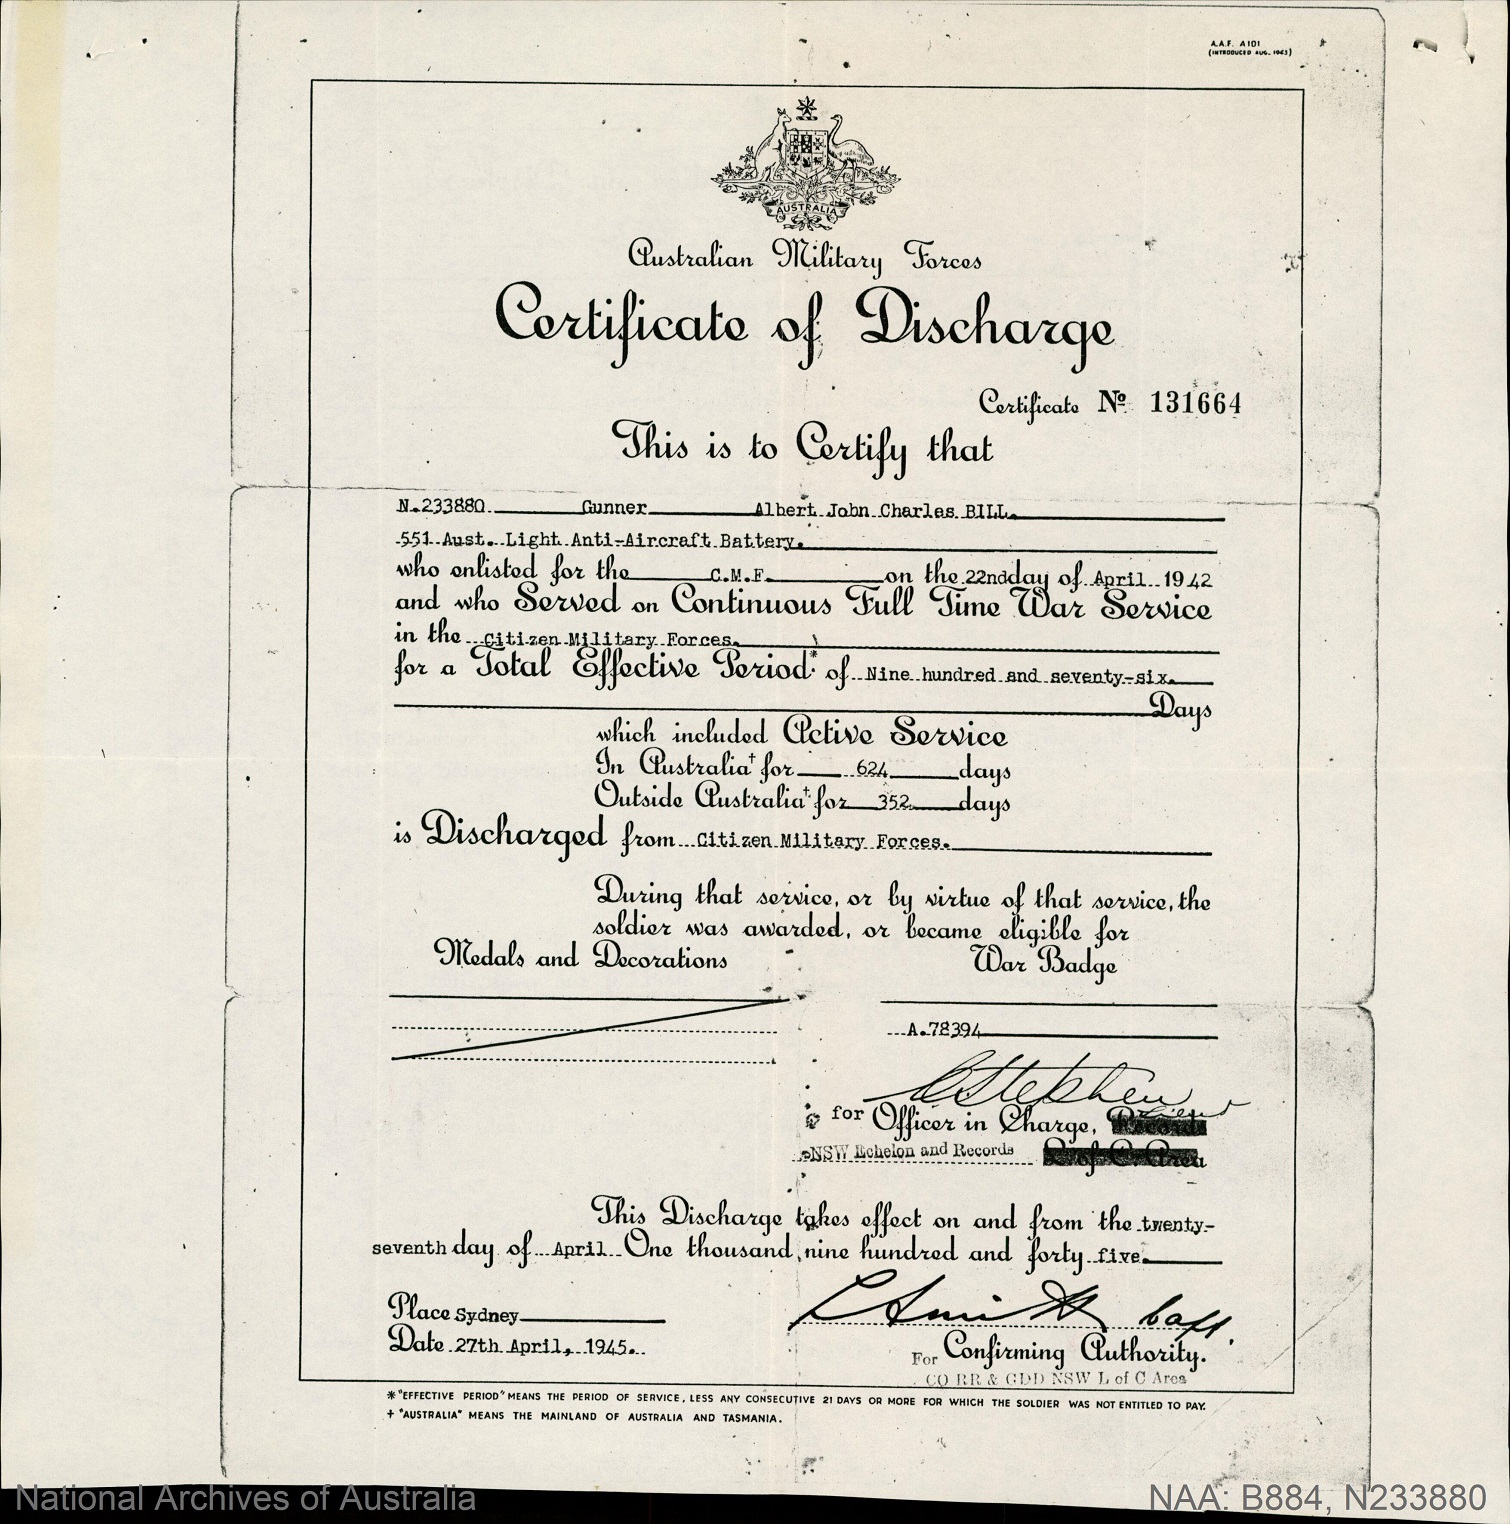 A.A.F. A101
(INTRODUCED AUG. 1943)
AUSTRALIA
Australian Military Forces
Certificate of Discharge
Certificate No 131664
This is to Certify that
N.233880 Gunner Albert John Charles BILL.
551 Aust. Light Anti-Aircraft Battery.
who enlisted for the C.M.F. on the 22nd day of April 1942
and who Served on Continuous Full Time War Service
in the Citizen Military Forces.
for a Total Effective Period* of Nine hundred and seventy-six.
Days
which included Active Service
In Australia† for 624 days
Outside Australia† for 352 days
is Discharged from Citizen Military Forces.
During that service, or by virtue of that service, the
soldier was awarded, or became eligible for
Medals and Decorations War Badge
A.78394
Stephen
Lieut
for Officer in Charge, Records
NSW Echelon and Records L of C. Area
This Discharge takes effect on and from the twenty-
seventh day of April One thousand nine hundred and forty five.
Place Sydney
Smith Capt.
Date 27th April, 1945.
For Confirming Authority.
CO RR & GDD NSW L of C Area
* "EFFECTIVE PERIOD" MEANS THE PERIOD OF SERVICE, LESS ANY CONSECUTIVE 21 DAYS OR MORE FOR WHICH THE SOLDIER WAS NOT ENTITLED TO PAY.
† "AUSTRALIA" MEANS THE MAINLAND OF AUSTRALIA AND TASMANIA.
National Archives of Australia NAA: B884, N233880